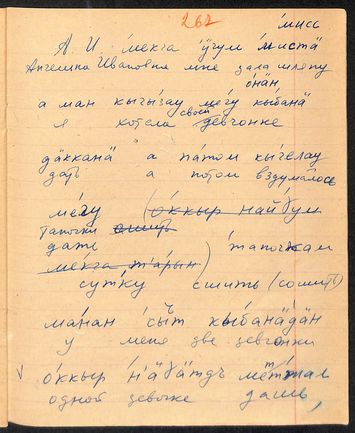 262
мисс
А. И. ме́кга ӱгум мистӓ
Ангелина Ивановна мне дала шляпу
о́нӓн
а ман кыгы́зау ме́гу кы́банӓ
я хотела свой девчонке
дӓкканӓ а па́том кы́гелау
дать а потом вздумалось
ме́гу (о́ккыр най ум
тапочки сшить
дате ) тапочкам
ме́кга, т'а́рын
су́тку сшить (сошить)
ма́нан сы́т кы́банӓдӓн
у меня две девчонки
v о́ккыр н'ӓ дъ ме́ттал
одной девочке дашь,